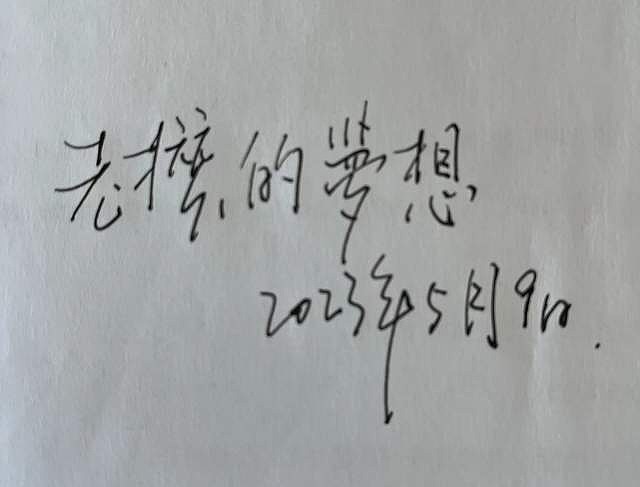 老的夢想
2023年5月9日.